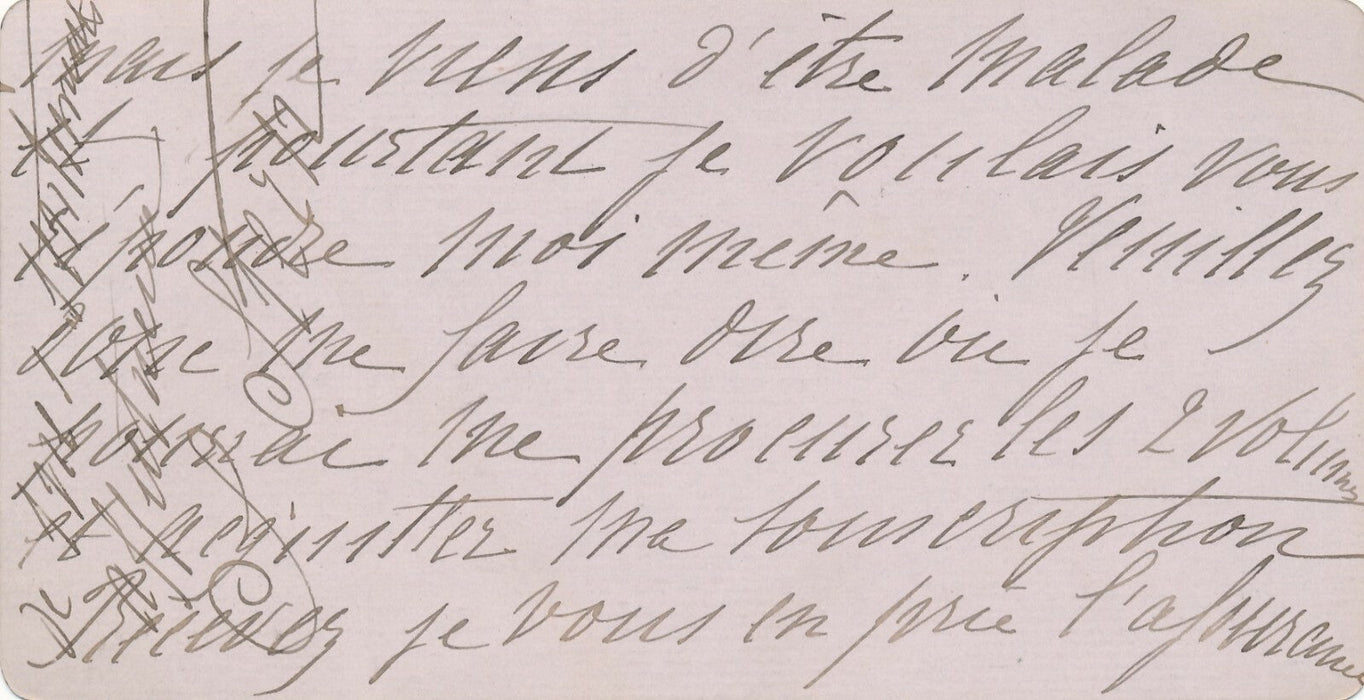 mais je viens d'être malade
et pourtant je voulais vous
répondre moi même. Veuillez
donc me faire dire où je
pourrai me procurer les 2 volumes
et acquitter ma souscription
Recevez je vous en prie l'assurance